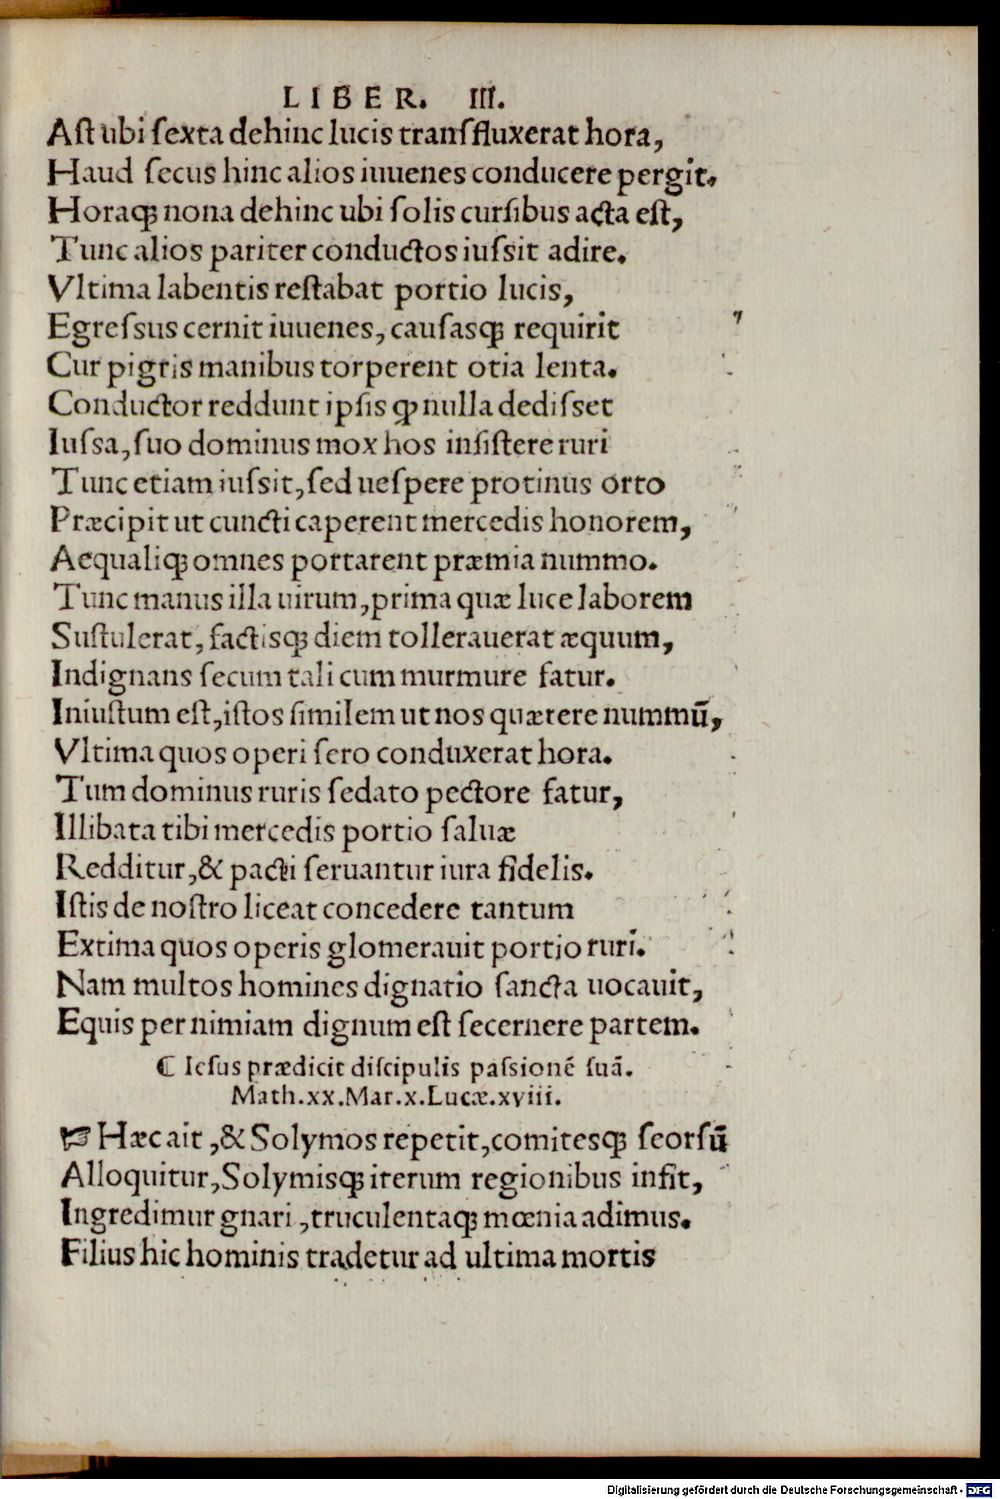 LIBER. III.
Ast ubi sexta dehinc lucis transfluxerat hora,
Haud secus hinc alios iuuenes conducere pergit.
Horaqꝫ nona dehinc ubi solis cursibus acta est,
Tunc alios pariter conductos iussit adire.
Vltima labentis restabat portio lucis,
Egressus cernit iuuenes, causasqꝫ requirit
Cur pigris manibus torperent otia lenta.
Conductor reddunt ipsis ꝙ nulla dedisset
Iussa, suo dominus mox hos insistere ruri
Tunc etiam iussit, sed uespere protinus orto
Præcipit ut cuncti caperent mercedis honorem,
Aequaliqꝫ omnes portarent præmia nummo.
Tunc manus illa uirum, prima quæ luce laborem
Sustulerat, factisqꝫ diem tollerauerat æquum,
Indignans secum tali cum murmure fatur.
Iniustum est, istos similem ut nos quærere nummū,
Vltima quos operi sero conduxerat hora.
Tum dominus ruris sedato pectore fatur,
Illibata tibi mercedis portio saluæ
Redditur, & pacti seruantur iura fidelis.
Istis de nostro liceat concedere tantum
Extima quos operis glomerauit portio ruri.
Nam multos homines dignatio sancta uocauit,
Equis per nimiam dignum est secernere partem.
¶ Iesus prædicit discipulis passionē suā.
Math.xx.Mar.x.Lucæ.xviii.
☞ Hæc ait, & Solymos repetit, comitesqꝫ seorsū
Alloquitur, Solymisqꝫ iterum regionibus infit,
Ingredimur gnari, truculentaqꝫ mœnia adimus.
Filius hic hominis tradetur ad ultima mortis
Digitalisierung gefördert durch die Deutsche Forschungsgemeinschaft - DFG